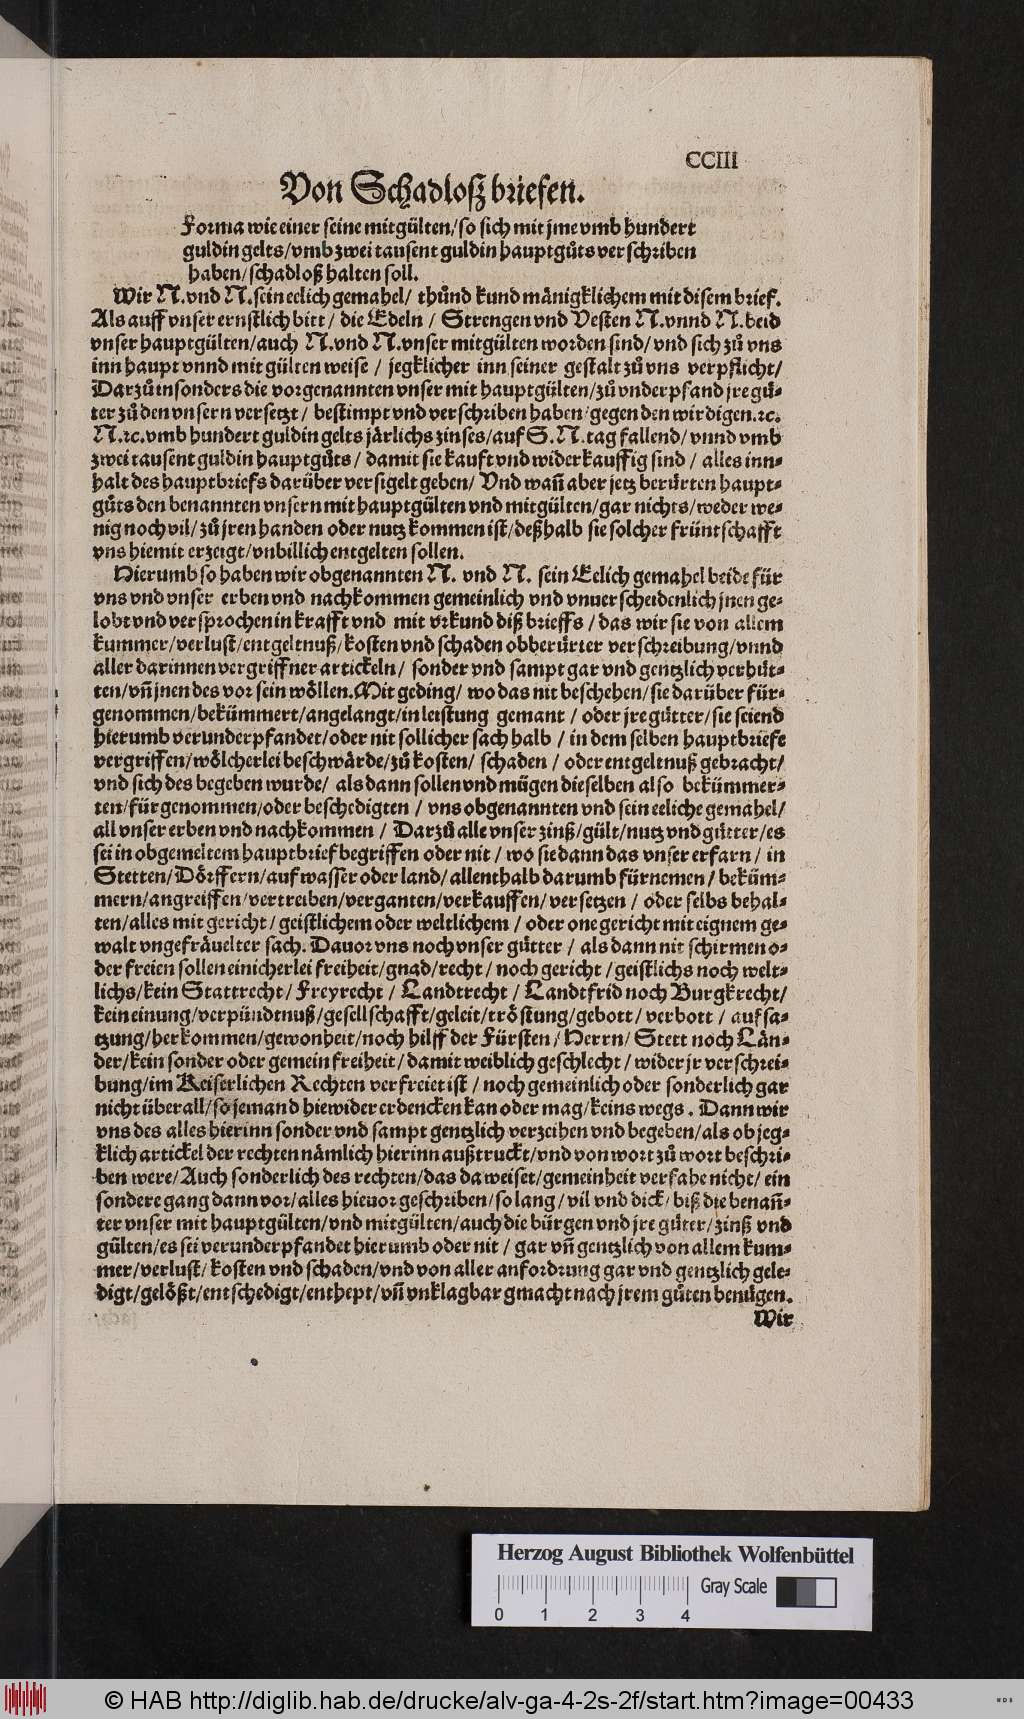 CCIII
Von Schadlosz briefen.
Forma wie einer seine mitgülten/so sich mit jme vmb hundert
guldin gelts/vmb zwei tausent guldin hauptgůts verschriben
haben/schadloß halten soll.
Wir N.vnd N.sein eelich gemahel/ thůnd kund mänigklichem mit disem brief.
Als auff vnser ernstlich bitt/ die Edeln / Strengen vnd Vesten N.vnnd N.beid
vnser hauptgülten/auch N.vnd N.vnser mitgülten worden sind/vnd sich zů vns
inn haupt vnnd mit gülten weise / jegklicher inn seiner gestalt zů vns verpflicht/
Darzů insonders die vorgenannten vnser mit hauptgülten/zů vnderpfand jre gü-
ter zů den vnsern versetzt / bestimpt vnd verschriben haben/gegen den wirdigen.ꝛc.
N.ꝛc.vmb hundert guldin gelts järlichs zinses/auf S.N.tag fallend/vnnd vmb
zwei tausent guldin hauptgůts/ damit sie kauft vnd widerkauffig sind / alles inn-
halt des hauptbriefs darüber versigelt geben/ Vnd wañ aber jetz berürten haupt-
gůts den benannten vnsern mit hauptgülten vnd mitgülten/gar nichts/weder we-
nig noch vil/zů jren handen oder nutz kommen ist/deßhalb sie solcher früntschafft
vns hiemit erzeigt/vnbillich entgelten sollen.
Hierumb so haben wir obgenannten N. vnd N. sein Eelich gemahel beide für
vns vnd vnser erben vnd nachkommen gemeinlich vnd vnuerscheidenlich jnen ge-
lobt vnd versprochen in krafft vnd mit vrkund diß brieffs / das wir sie von allem
kummer/verlust/entgeltnuß/kosten vnd schaden obberürter verschreibung/vnnd
aller darinnen vergriffner artickeln/ sonder vnd sampt gar vnd gentzlich verhüt-
ten/vñ jnen des vor sein wöllen.Mit geding/ wo das nit beschehen/sie darüber für-
genommen/bekümmert/angelangt/in leistung gemant / oder jre gütter/sie seiend
hierumb verunderpfandet/oder nit sollicher sach halb / in dem selben hauptbriefe
vergriffen/wölcherlei beschwärde/zů kosten/ schaden / oder entgeltnuß gebracht/
vnd sich des begeben wurde/ als dann sollen vnd mügen dieselben also bekümmer-
ten/fürgenommen/oder beschedigten / vns obgenannten vnd sein eeliche gemahel/
all vnser erben vnd nachkommen / Darzů alle vnser zinß/gült/nutz vnd gütter/es
sei in obgemeltem hauptbrief begriffen oder nit / wo sie dann das vnser erfarn / in
Stetten/Dörffern/auf wasser oder land/allenthalb darumb fürnemen/ beküm-
mern/angreiffen/vertreiben/verganten/verkauffen/versetzen / oder selbs behal-
ten/alles mit gericht/geistlichem oder weltlichem / oder one gericht mit eignem ge-
walt vngefräuelter sach.Dauor vns noch vnser gütter / als dann nit schirmen o-
der freien sollen einicherlei freiheit/gnad/recht / noch gericht /geistlichs noch welt-
lichs/kein Stattrecht/ Freyrecht / Landtrecht / Landtfrid noch Burgkrecht/
kein einung/verpündtnuß/gesellschafft/geleit/tröstung/gebott/verbott / aufsa-
tzung/herkommen/gewonheit/noch hilff der Fürsten/Herrn/ Stett noch Län-
der/kein sonder oder gemein freiheit/damit weiblich geschlecht/wider jr verschrei-
bung/im Keiserlichen Rechten verfreiet ist / noch gemeinlich oder sonderlich gar
nicht überall/so jemand hiewider erdencken kan oder mag/keins wegs. Dann wir
vns des alles hierinn sonder vnd sampt gentzlich verzeihen vnd begeben/als ob jeg-
klich artickel der rechten nämlich hierinn außtruckt/vnd von wort zů wort beschri-
ben were/Auch sonderlich des rechten/das da weiset/gemeinheit verfahe nicht/ ein
sondere gang dann vor/alles hieuor geschriben/so lang / vil vnd dick/ biß die benañ-
ter vnser mit hauptgülten/vnd mitgülten/auch die bürgen vnd jre güter/zinß vnd
gülten/es sei verunderpfandet hierumb oder nit / gar vñ gentzlich von allem kum-
mer/verlust/kosten vnd schaden/vnd von aller anfordrung gar vnd gentzlich gele-
digt/gelößt/entschedigt/enthept/vñ vnklagbar gmacht nach jrem gůten benügen.
Wir
Herzog August Bibliothek Wolfenbüttel
Gray Scale
0 1 2 3 4
© HAB http://diglib.hab.de/drucke/alv-ga-4-2s-2f/start.htm?image=00433